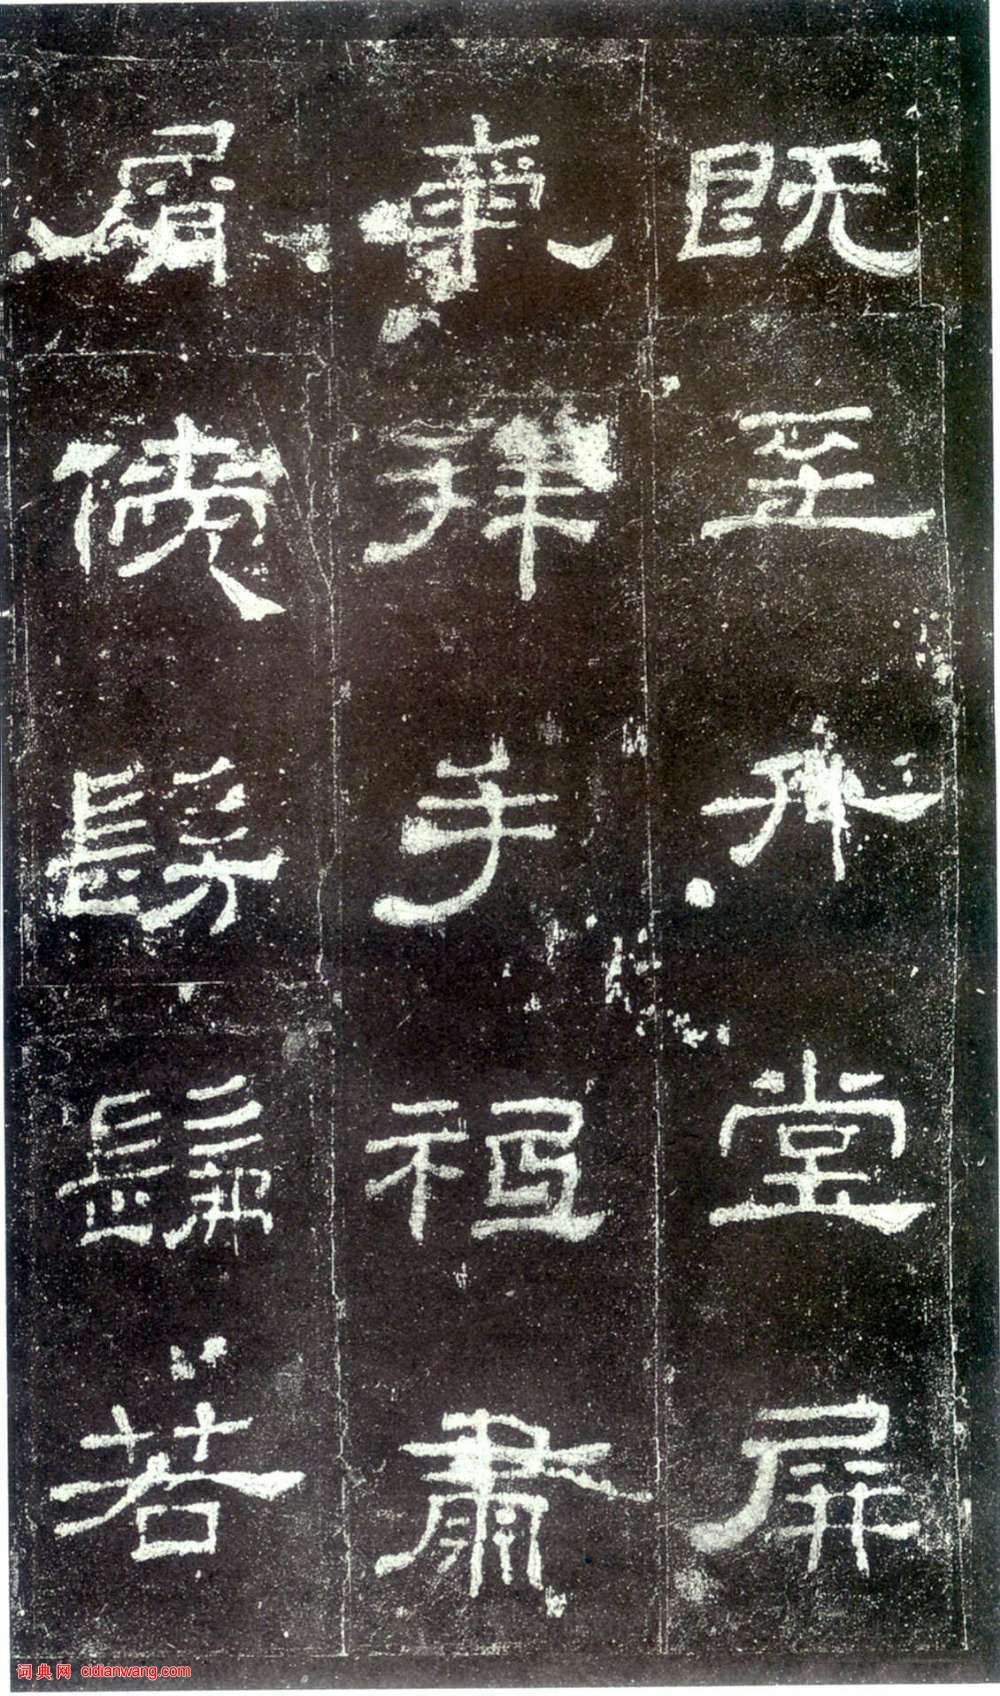 既至升堂屏
氣拜手祗肅
屑僾髣髴若
词典网 cidianwang.com